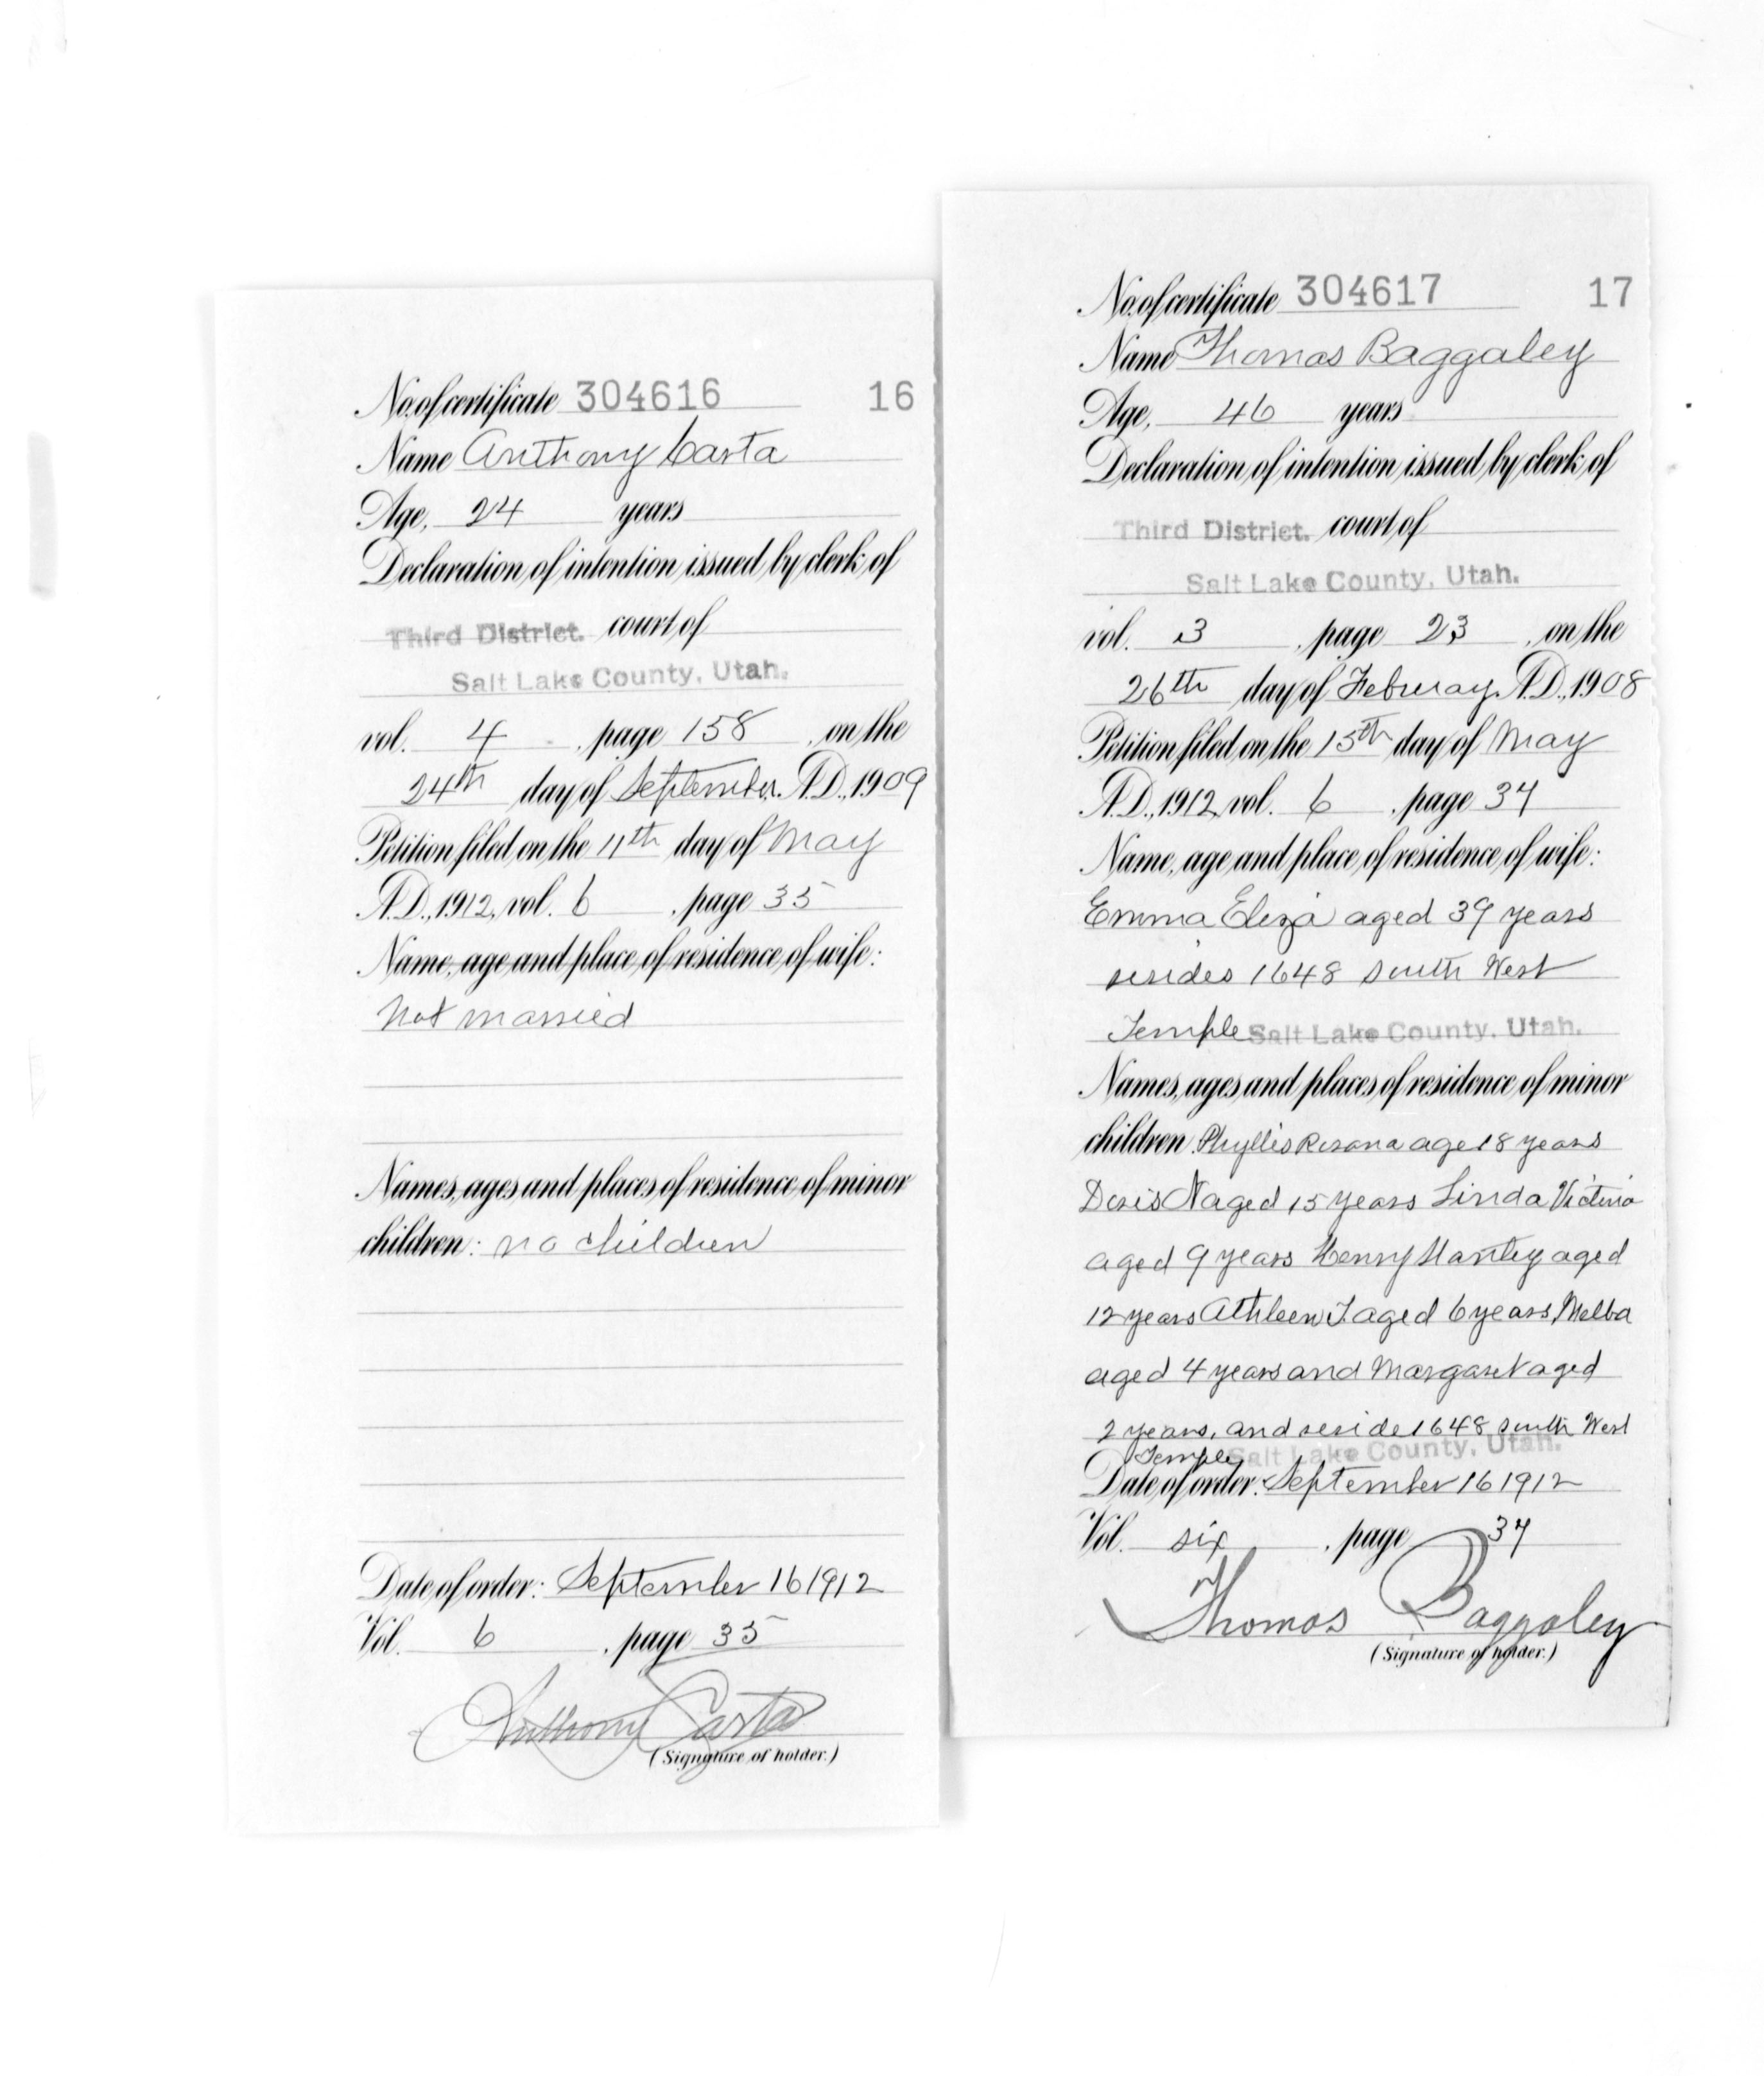 No. of certificate 304616 16
Name Anthony Carta
Age, 24 years
Declaration of intention issued by clerk of
Third District. court of
Salt Lake County, Utah.
vol. 4 , page 158 , on the
24th day of September A.D., 1909
Petition filed on the 11th day of May
A.D., 1912, vol. 6 , page 35
Name, age and place of residence of wife:
Not married
Names, ages and places of residence of minor
children: no children
Date of order: September 16 1912
Vol. 6 , page 35
Anthony Carta
(Signature of holder.)
No. of certificate 304617 17
Name Thomas Baggaley
Age, 46 years
Declaration of intention issued by clerk of
Third District. court of
Salt Lake County, Utah.
vol. 3 , page 23 , on the
26th day of Februray A.D., 1908
Petition filed on the 15th day of May
A.D., 1912, vol. 6 , page 37
Name, age and place of residence of wife:
Emma Eliza aged 39 years
resides 1648 South West
Temple Salt Lake County, Utah.
Names, ages and places of residence of minor
children Phyllis Rosana age 18 years
Doris N aged 15 years Linda Victoria
aged 9 years Henry aged
12 years Athleen T. aged 6 years, Melba
aged 4 years and Margaret aged
2 years, and reside 1648 South West
Temple Salt Lake County, Utah.
Date of order: September 16 1912
Vol. six , page 37
Thomas Baggaley
(Signature of holder.)